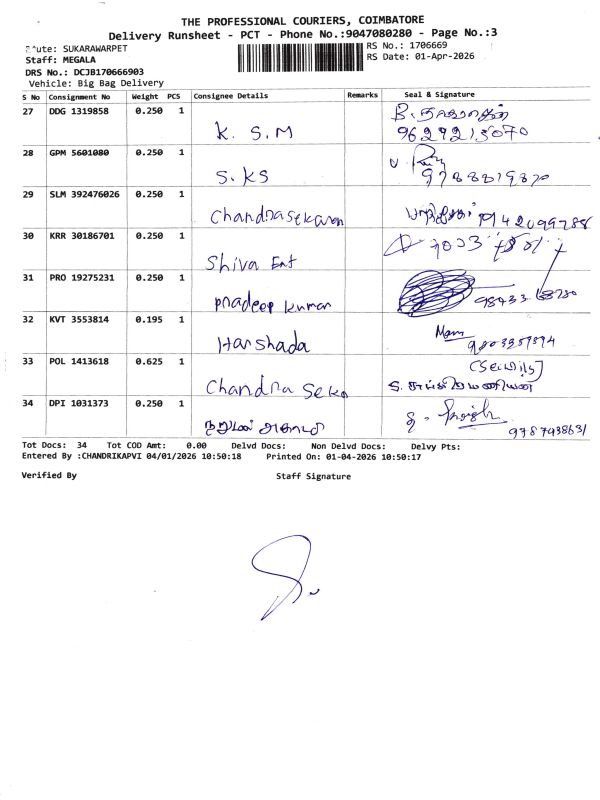 THE PROFESSIONAL COURIERS, COIMBATORE
Delivery Runsheet - PCT - Phone No.:9047080280 - Page No.:3
Route: SUKARAWARPET
RS No.: 1706669
Staff: MEGALA
RS Date: 01-Apr-2026
DRS No.: DCJB170666903
Vehicle: Big Bag Delivery
S No Consignment No Weight PCS Consignee Details Remarks Seal & Signature
27 DDG 1319858 0.250 1 K. S. M
9629213070
28 GPM 5601080 0.250 1 S. KS
29 SLM 392476026 0.250 1 Chandrasekaran
30 KRR 30186701 0.250 1 Shiva Ent
31 PRO 19275231 0.250 1 Pradeep Kumar
32 KVT 3553814 0.195 1 Harshada
33 POL 1413618 0.625 1 Chandra Seka
34 DPI 1031373 0.250 1
9787938631
Tot Docs: 34 Tot COD Amt: 0.00 Delvd Docs: Non Delvd Docs: Delvy Pts:
Entered By :CHANDRIKAPVI 04/01/2026 10:50:18 Printed On: 01-04-2026 10:50:17
Verified By Staff Signature